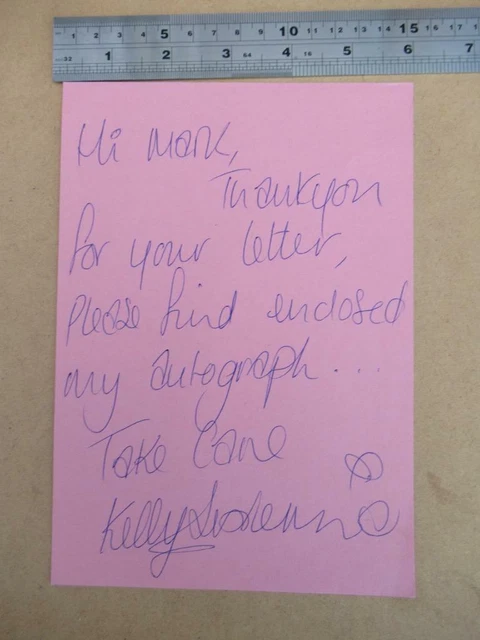 5 10 15
32 1 2 3 64 4 16 5 6 7
Hi Mark,
Thankyou
for your letter,
Please find enclosed
my autograph...
Take Care
Kelly